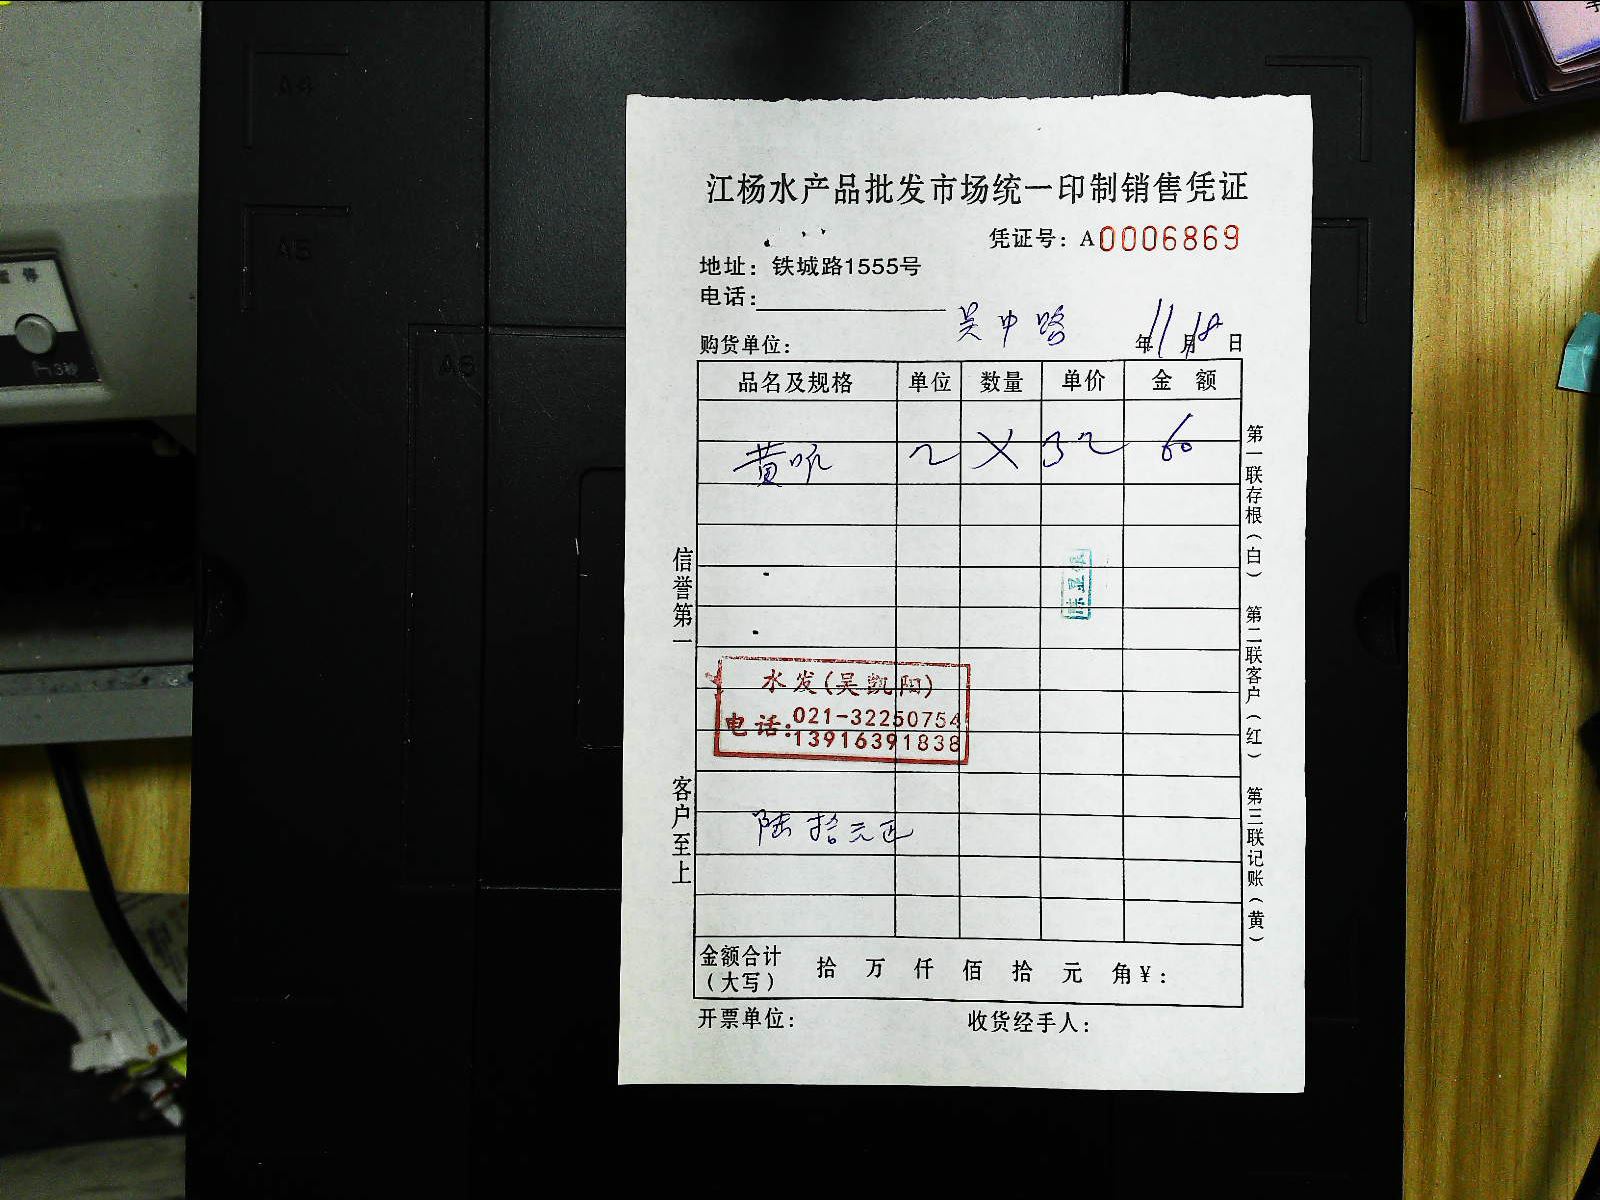 江杨水产品批发市场统一印制销售凭证
凭证号：A0006869
地址：铁城路1555号
电话：
吴中路
购货单位： 年11月18日
品名及规格 单位 数量 单价 金额
黄 2 × 32 60
信誉第一
客户至上
水发(吴凯阳)
电话:021-32250754
13916391838
陆拾元正
第一联存根（白） 第二联客户（红） 第三联记账（黄）
金额合计（大写） 拾 万 仟 佰 拾 元 角 ¥：
开票单位： 收货经手人：
A4
A5
A6
3秒